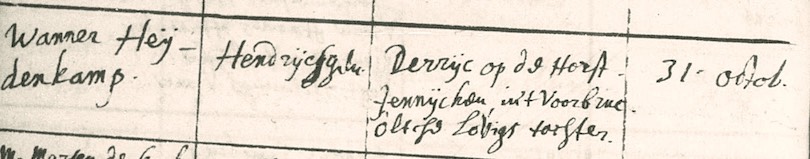 Wanner Heÿ-
denkamp.
Hendrijcsgdn.
Derrijc op de Horst -
Jennijcken, in't Voorbruc.
öltsche Lodigs tochter.
31. octob.